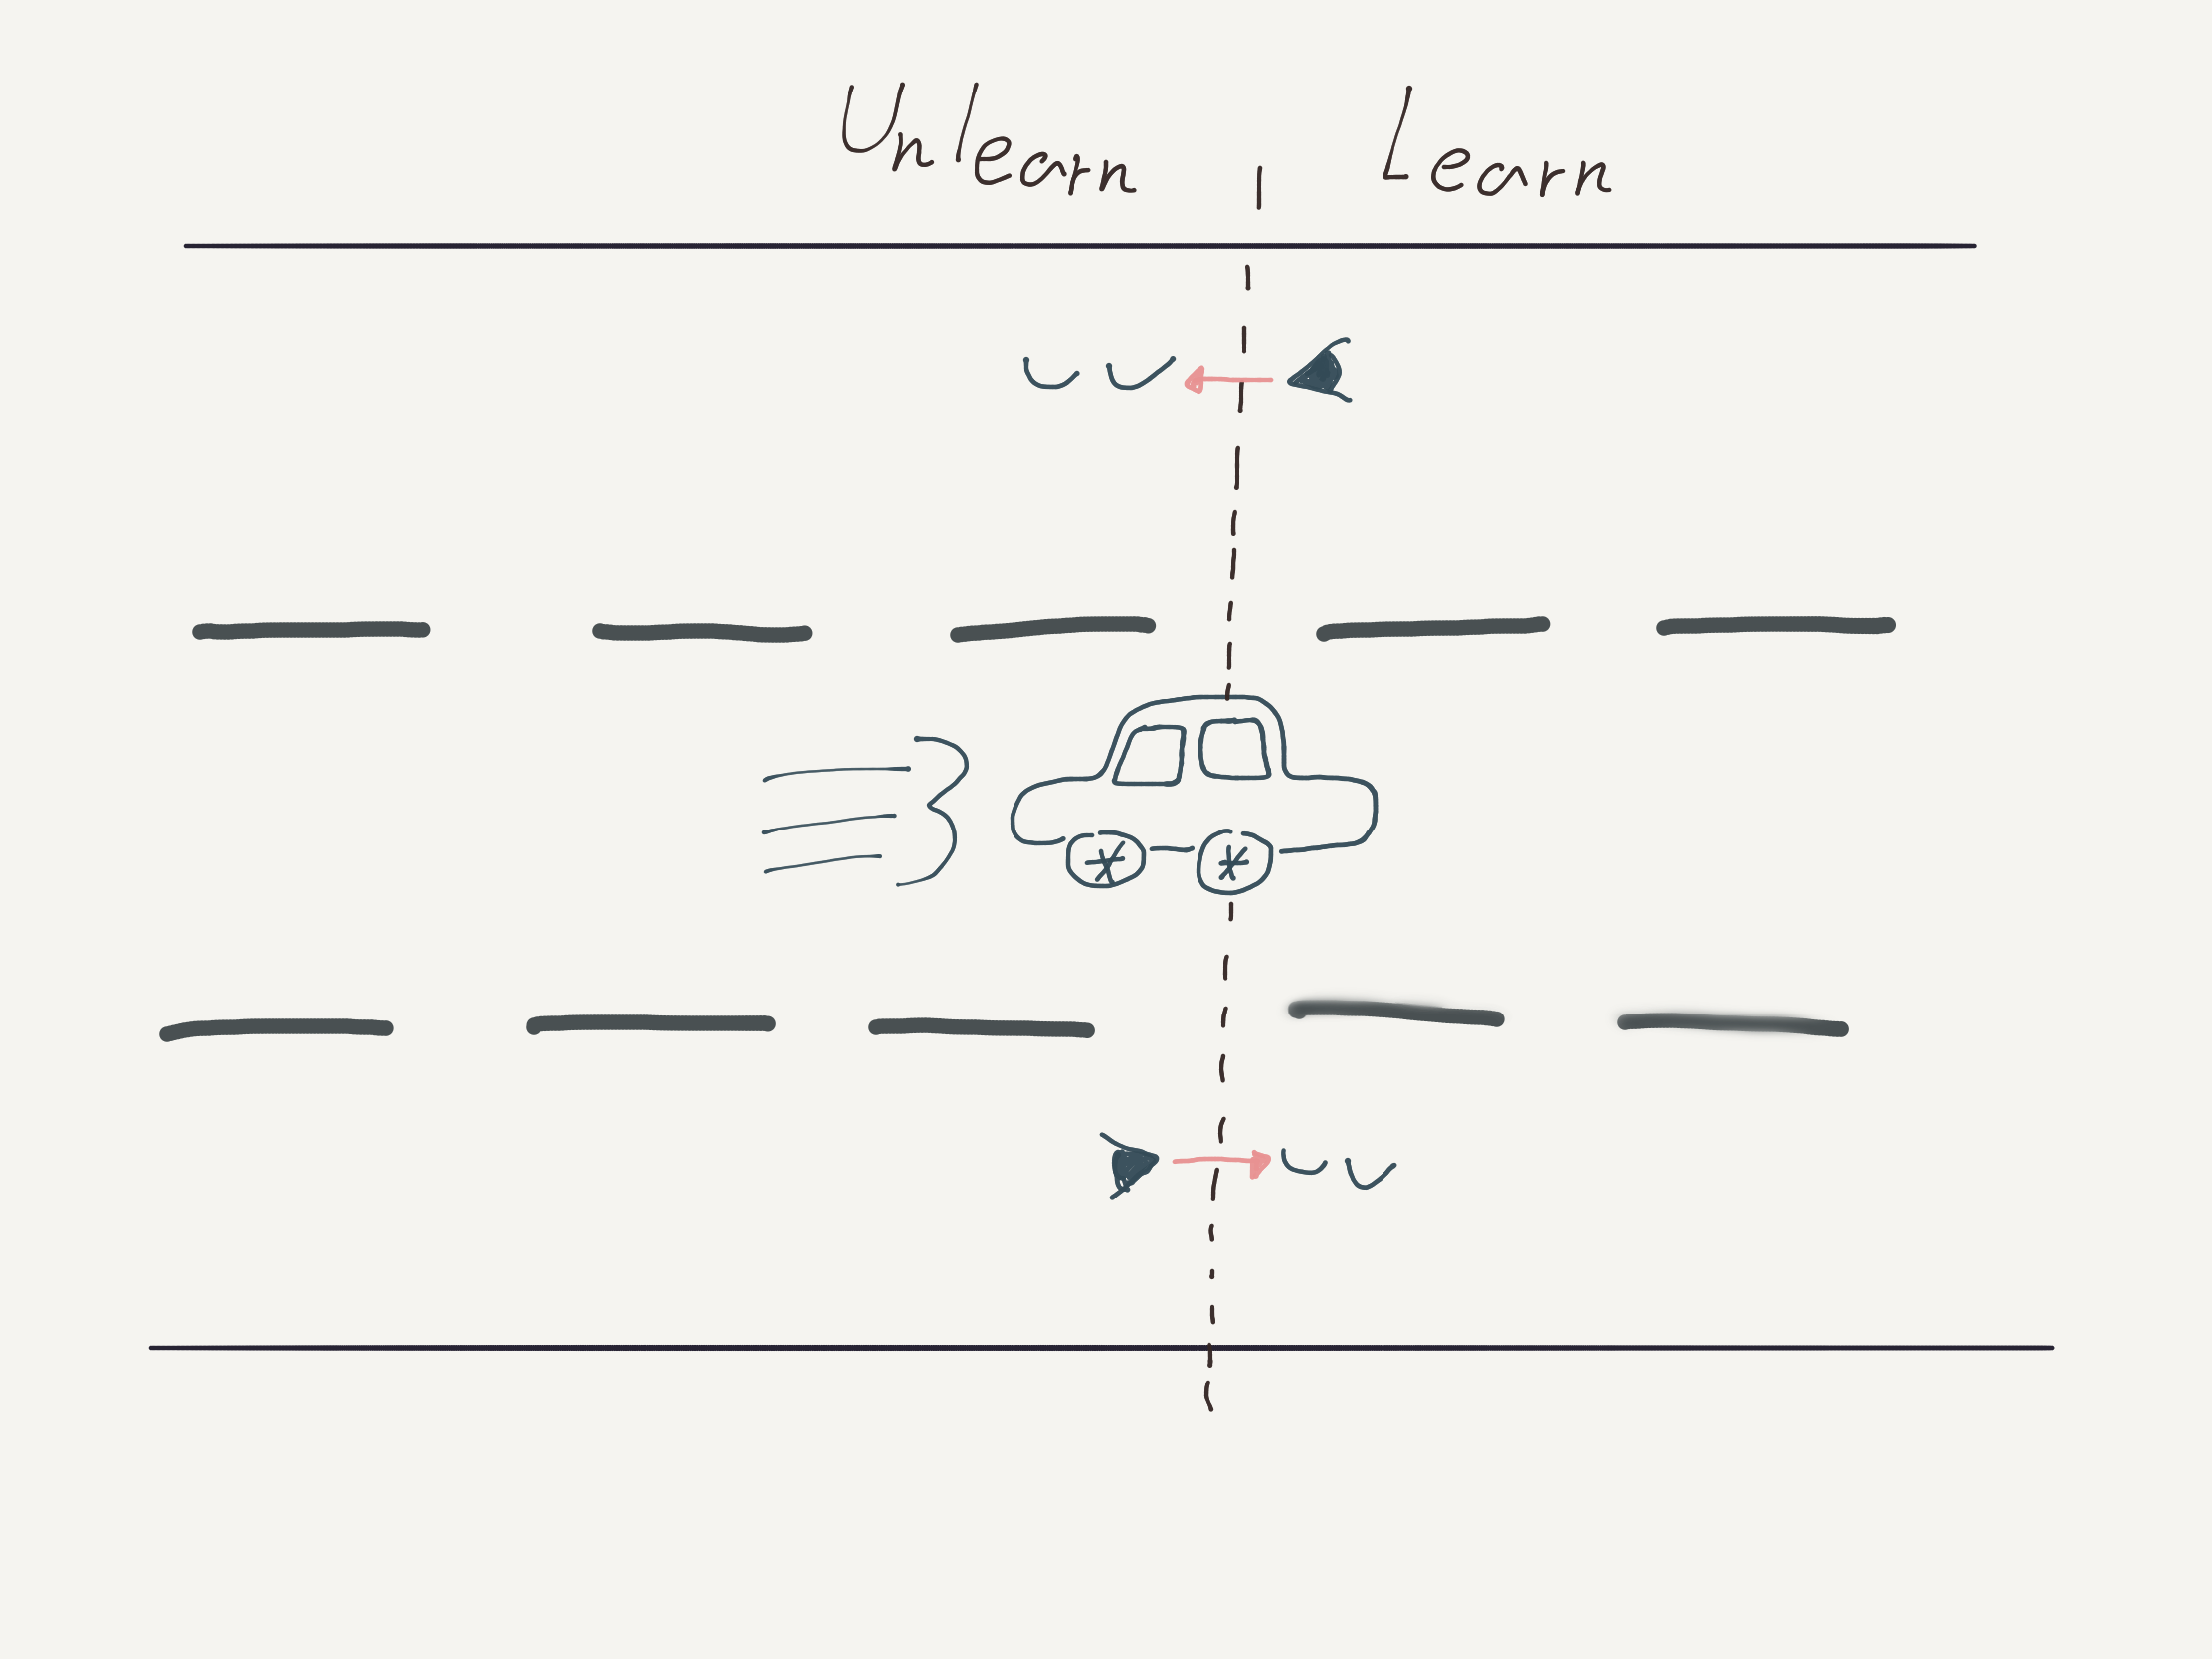 Unlearn Learn